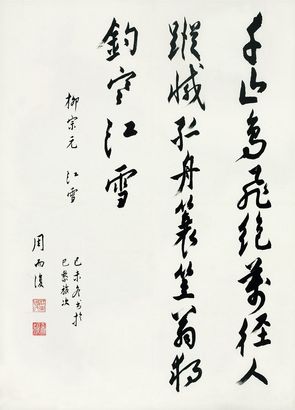 千山鳥飛絕萬徑人
蹤滅孤舟蓑笠翁獨
釣寒江雪
柳宗元 江雪
己未冬書於
巴黎旅次
周而復